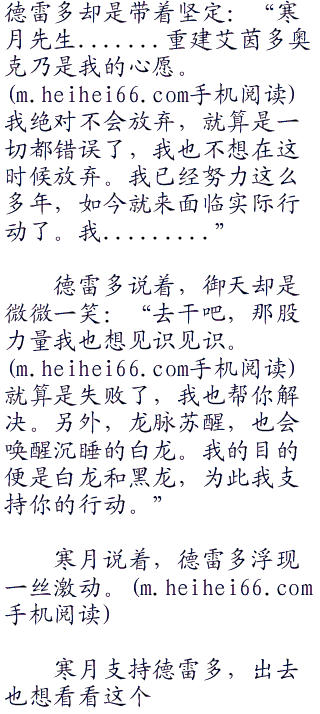 德雷多却是带着坚定：“寒
月先生.......重建艾茵多奥
克乃是我的心愿。
(m.heihei66.com手机阅读)
我绝对不会放弃，就算是一
切都错误了，我也不想在这
时候放弃。我已经努力这么
多年，如今就来面临实际行
动了。我.........”
德雷多说着，御天却是
微微一笑：“去干吧，那股
力量我也想见识见识。
(m.heihei66.com手机阅读)
就算是失败了，我也帮你解
决。另外，龙脉苏醒，也会
唤醒沉睡的白龙。我的目的
便是白龙和黑龙，为此我支
持你的行动。”
寒月说着，德雷多浮现
一丝激动。(m.heihei66.com
手机阅读)
寒月支持德雷多，出去
也想看看这个